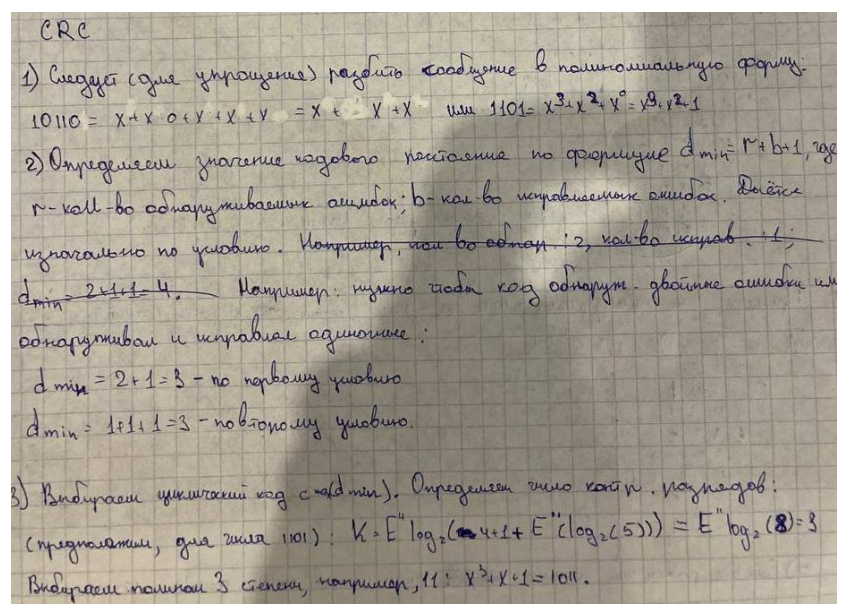 CRC
1) Следует (для упрощения) разбить сообщение в полиномиальную форму:
10110 = x+x 0+x+x+x = x+ x+x или 1101 = x³+x²+x⁰ = x³+x²+1
2) Определяем значение кодового расстояние по формуле d min = r+b+1, где
r - колл-во обнаруживаемых ошибок; b - кол-во исправляемых ошибок. Даётся
изначально по условию. Например, кол-во обнар : 2, кол-во исправ. : 1;
d min = 2+1+1=4. Например: нужно чтобы код обнаруж. двойные ошибки или
обнаруживал и исправлял одиночные:
d min = 2+1=3 - по первому условию
d min = 1+1+1=3 - по второму условию.
3) Выбираем циклический код с (d min). Определяем число контр. разрядов:
(предположим, для числа 1101): K = E" log₂(4+1+E"(log₂(5))) = E" log₂(8)=3
Выбираем полином 3 степени, например, 11: x³+x+1=1011.